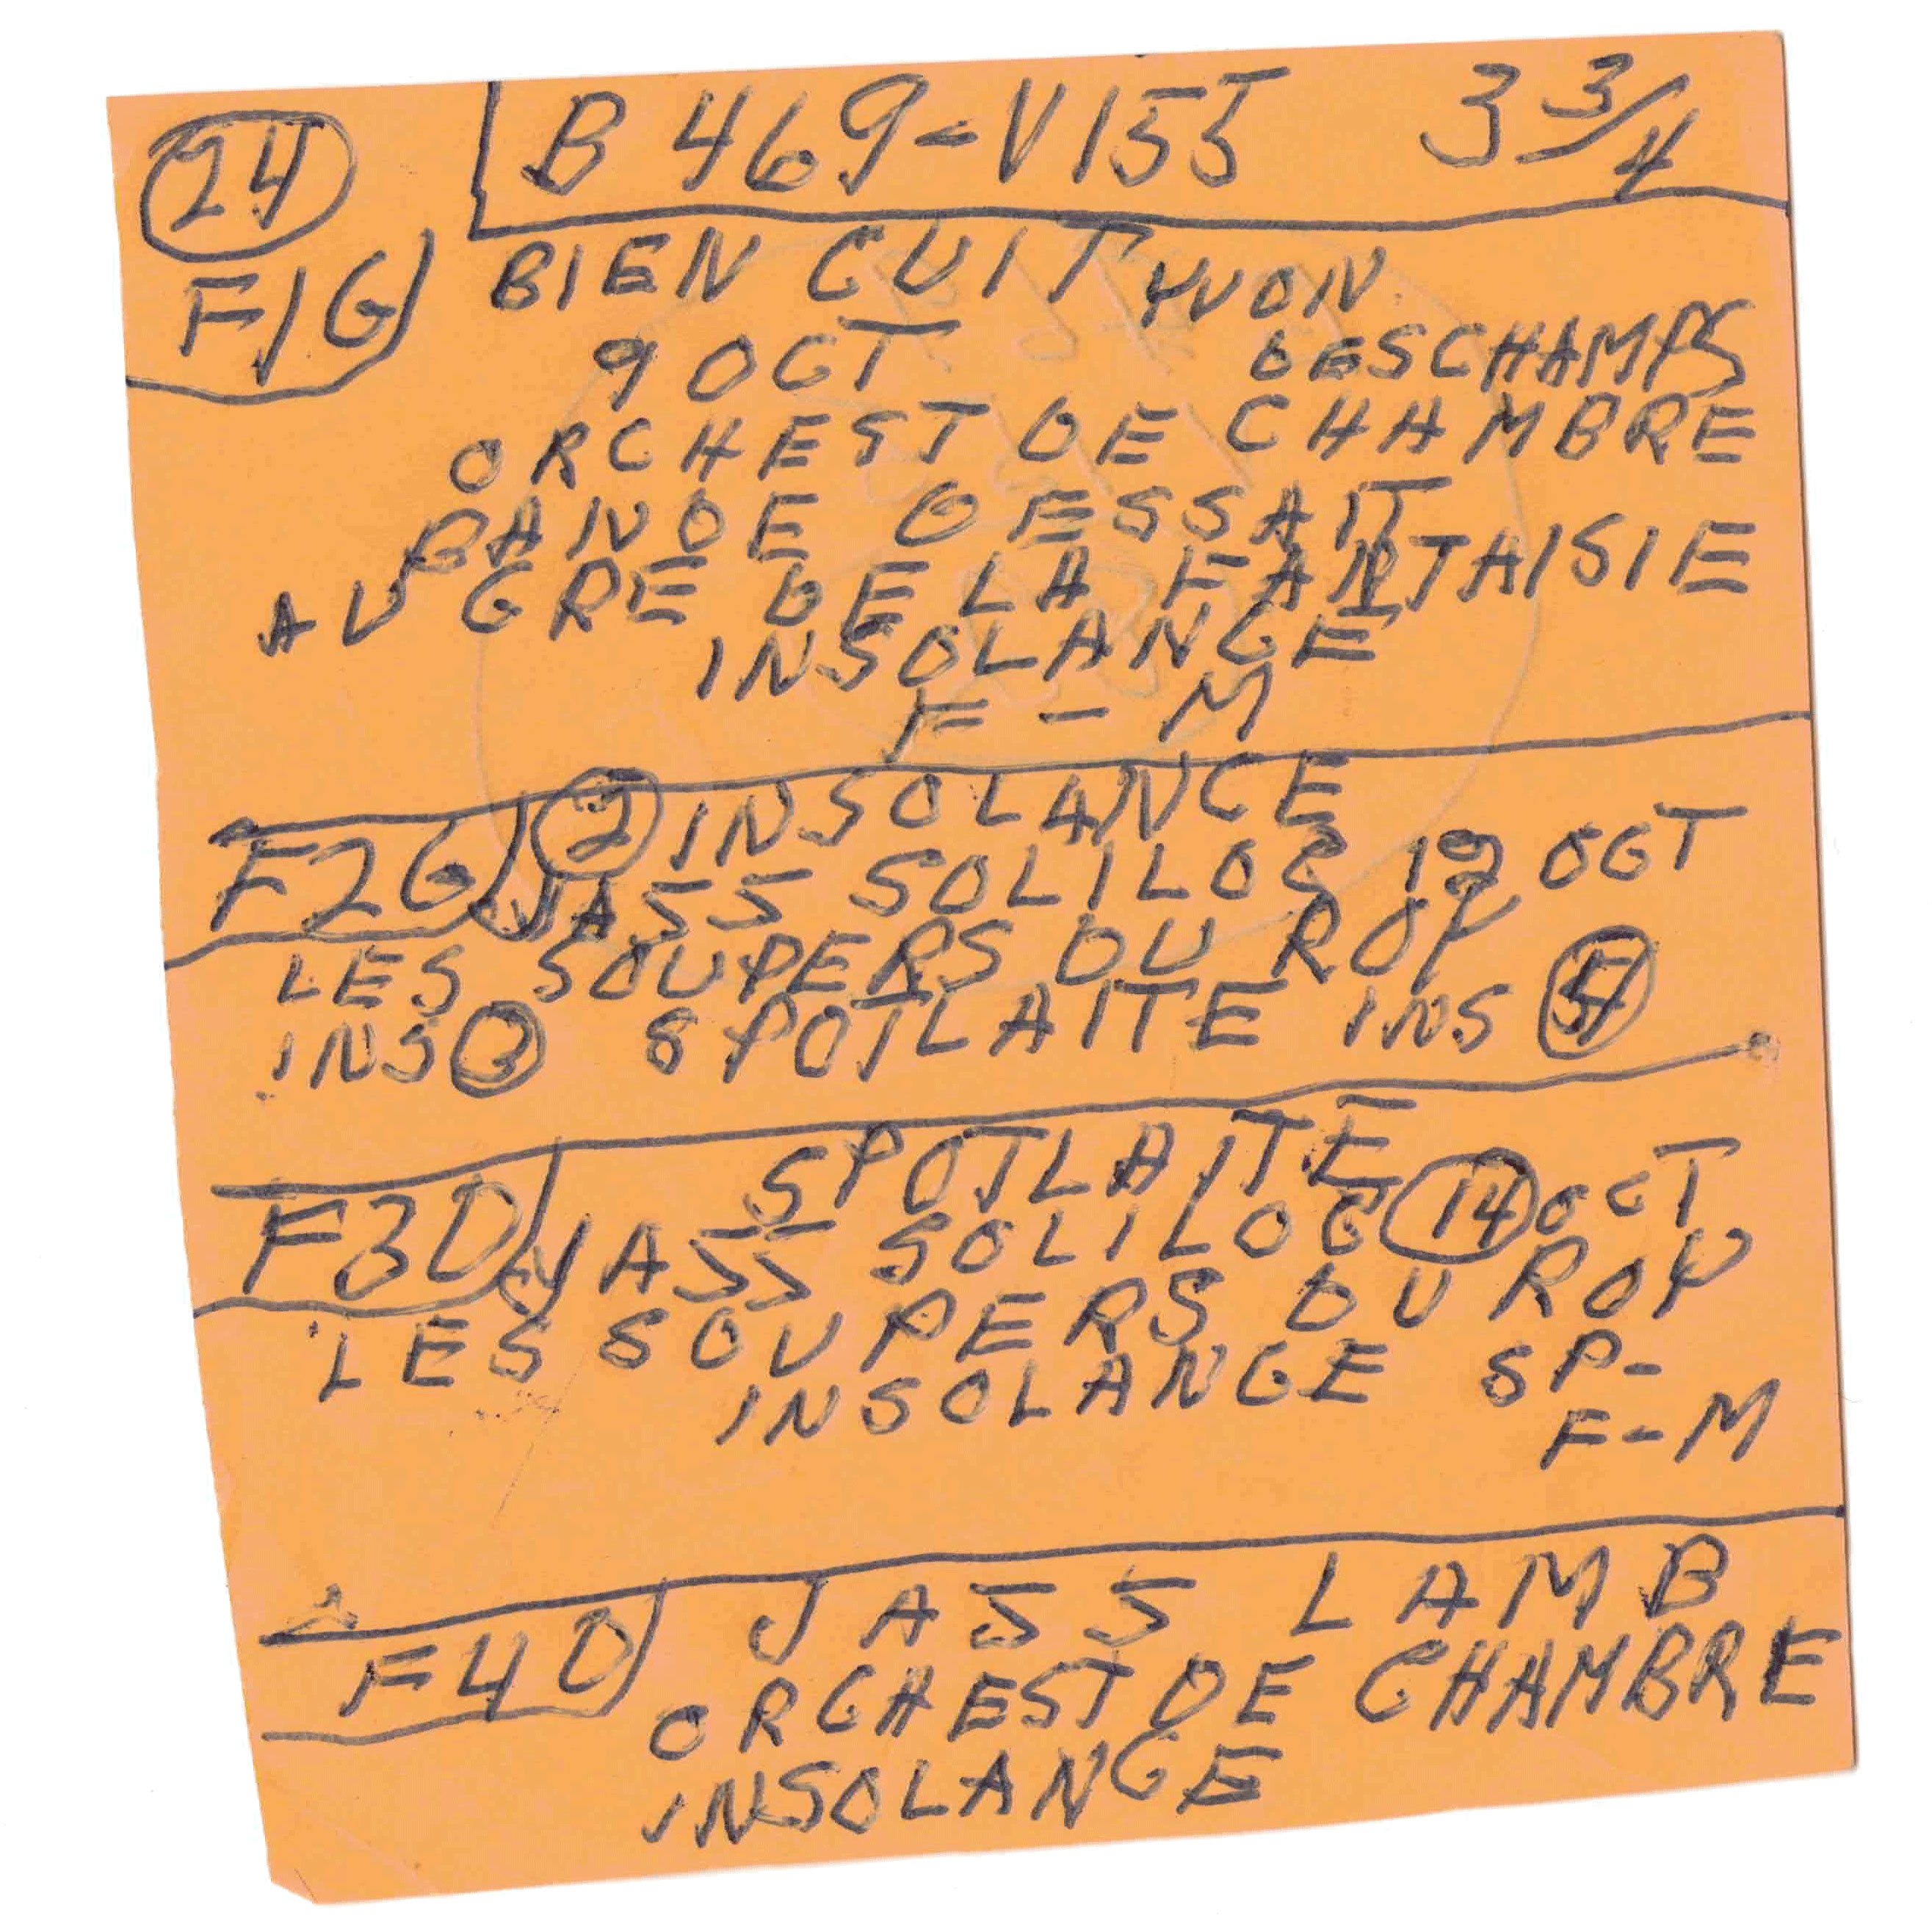 24 B 469-V155 3 3/4
F1G BIEN CUIT YVON
9 OCT DESCHAMPS
ORCHEST DE CHAMBRE
BANDE DESSAIT
AU GRE DE LA FANTAISIE
INSOLANCE
F-M
F2G 2 INSOLANCE
JASS SOLILOC 12 OCT
LES SOUPERS DU ROY
INS 3 SPOTLAITE INS
SPOTLAITE
F3D JASS SOLILOC 14 OCT
LES SOUPERS DU ROY
INSOLANCE SP-
F-M
F4D JASS LAMB
ORCHEST DE CHAMBRE
INSOLANCE